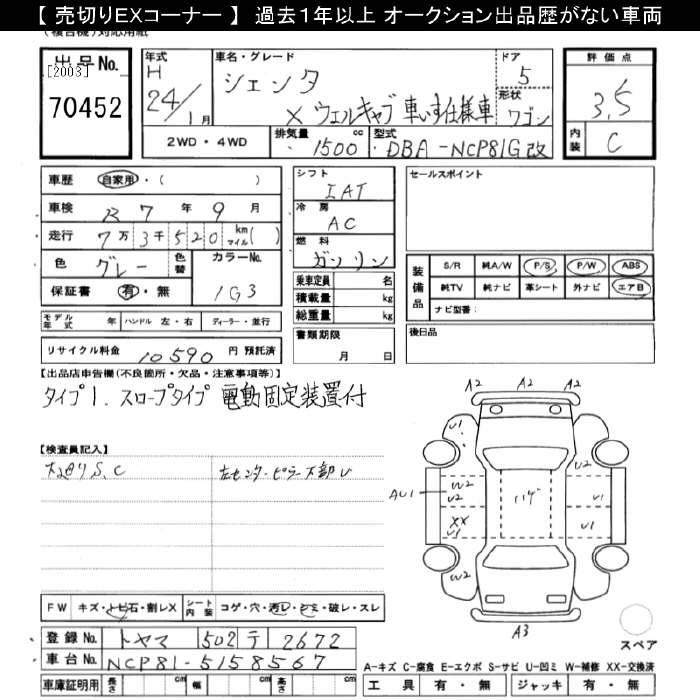 【 売切りEXコーナー 】 過去1年以上 オークション出品歴がない車両
出品No. [2003] 70452
年式 H 24/1月
車名・グレード シエンタ
X ウェルキャブ 車いす仕様車
ドア 5
形状 ワゴン
評価点 3.5
内装 C
2WD・4WD
排気量 1500 cc
型式 DBA-NCP81G改
車歴 自家用・( )
車検 R7年9月
走行 7万3千520 km マイル( )
色 グレー 色替
カラーNo. 1G3
保証書 有・無
シフト IAT
冷房 AC
燃料 ガソリン
乗車定員 名
積載量 kg
総重量 kg
書類期限 月 日
セールスポイント
装備品 S/R 純A/W P/S P/W ABS
純TV 純ナビ 革シート 外ナビ エアB
ナビ型番:
後日品
モデル年式 年 ハンドル 左・右 ディーラー・並行
リサイクル料金 10590 円 預託済
【出品店申告欄(不良箇所・欠品・注意事項等)】
タイプ1. スロープタイプ 電動固定装置付
【検査員記入】
左センターピラー下部U
A2 A2 A2
U1 U1
A2 A2
AU1 W2 U2 U1
XX U1 U1
W2 U2
A3
スペア
FW キズ・トビ石・割レX シート内装 コゲ・穴・汚レ・シミ・破レ・スレ
登録No. トヤマ 502 テ 2672
車台No. NCP81-5158567
車庫証明用 長さ cm 幅 cm 高さ cm
A-キズ C-腐食 E-エクボ S-サビ U-凹ミ W-補修 XX-交換済
工具 有・無 ジャッキ 有・無